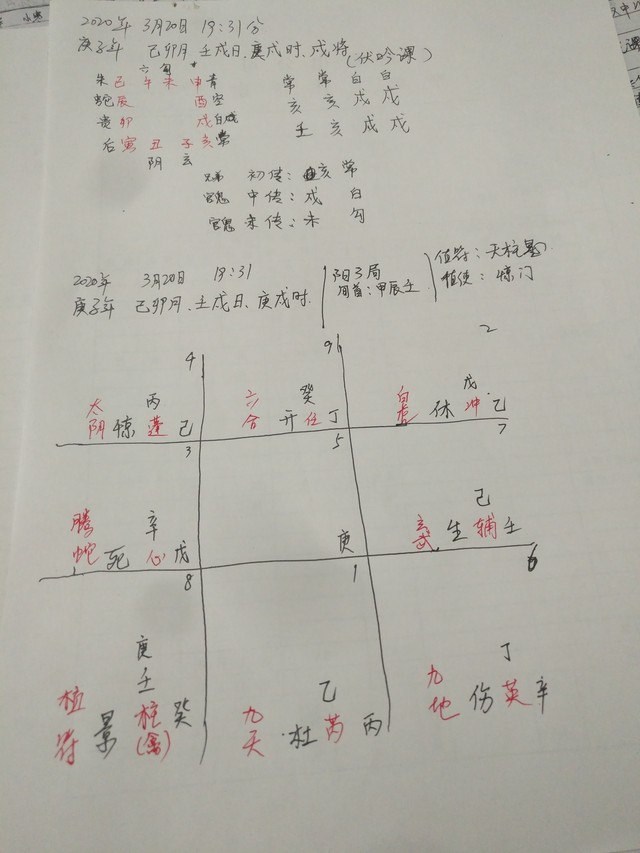 小鬼
2020年 3月20日 19:31分
庚子年 己卯月 壬戌日、庚戌时、戌将(伏吟课)
六 勾
朱 己 午 未 申 青 常 常 白 白
蛇 辰 酉 空 亥 亥 戌 戌
贵 卯 戌 白 壬 亥 戌 戌
后 寅 丑 子 亥 常
阴 玄
兄弟 初传: 亥 常
官鬼 中传: 戌 白
官鬼 末传: 未 勾
2020年 3月20日 19:31
庚子年 己卯月、壬戌日、庚戌时.
阳3局
旬首:甲辰壬
值符:天柱
值使:惊门
4 9 2
丙 癸 戊
太阴 惊 蓬 己 六合 开 任 丁 白虎 休 冲 乙
3 5 7
辛 己
腾蛇 死 心 戊 庚 玄武 生 辅 壬
8 1 6
庚
壬 乙 丁
植符 景 柱 癸 九天 杜 芮 丙 九地 伤 英 辛
(禽)